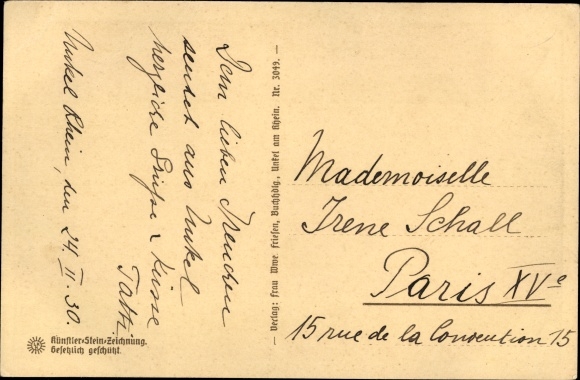 Unkel Rhein, den 24. II. 30.
Dem lieben
sendet aus Unkel
herzliche Grüße & Küsse
— Verlag: Frau Wwe. Friesen, Buchhdlg., Unkel am Rhein. Nr. 3049. —
Mademoiselle
Irene Schall
Paris XVe
15 rue de la Convention 15
Künstler-Stein-Zeichnung.
Gesetzlich geschützt.